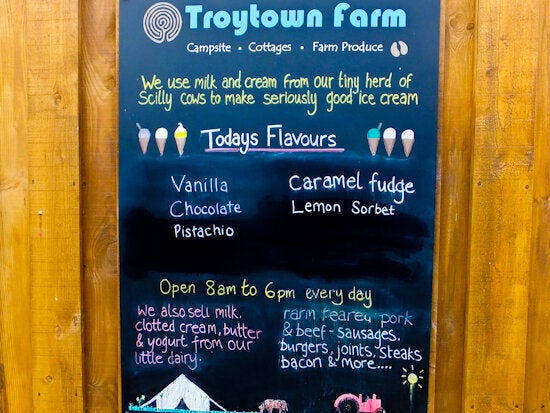 Troytown Farm
Campsite • Cottages • Farm Produce
We use milk and cream from our tiny herd of
Scilly cows to make seriously good ice cream
Todays Flavours
Vanilla
Chocolate
Pistachio
Caramel fudge
Lemon Sorbet
Open 8am to 6pm every day
We also sell milk,
clotted cream, butter
& yogurt from our
little dairy.
Farm reared pork
& beef - sausages,
burgers, joints, steaks
bacon & more....